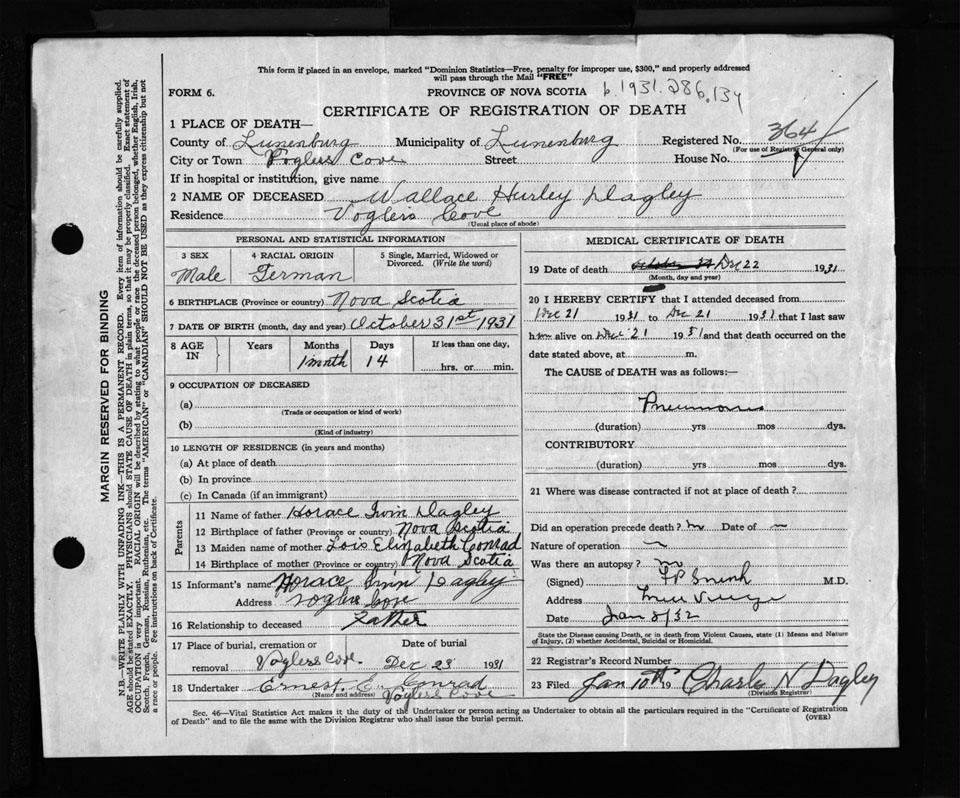 This form if placed in an envelope, marked "Dominion Statistics—Free, penalty for improper use, $300," and properly addressed
will pass through the Mail "FREE"
FORM 6.
PROVINCE OF NOVA SCOTIA b. 1931. 286.134
CERTIFICATE OF REGISTRATION OF DEATH
1 PLACE OF DEATH—
County of Lunenburg Municipality of Lunenburg Registered No. 364
(For use of Registrar General only)
City or Town Voglers Cove Street House No.
If in hospital or institution, give name
2 NAME OF DECEASED Wallace Hurley Dagley
Residence Voglers Cove
(Usual place of abode)
PERSONAL AND STATISTICAL INFORMATION
3 SEX 4 RACIAL ORIGIN 5 Single, Married, Widowed or
Divorced. (Write the word)
Male German
6 BIRTHPLACE (Province or country) Nova Scotia
7 DATE OF BIRTH (month, day and year) October 31st 1931
8 AGE IN Years Months Days If less than one day,
1 month 14 hrs. or min.
9 OCCUPATION OF DECEASED
(a)
(Trade or occupation or kind of work)
(b)
(Kind of industry)
10 LENGTH OF RESIDENCE (in years and months)
(a) At place of death
(b) In province
(c) In Canada (if an immigrant)
Parents
11 Name of father Horace Irvin Dagley
12 Birthplace of father (Province or country) Nova Scotia
13 Maiden name of mother Lois Elizabeth Conrad
14 Birthplace of mother (Province or country) Nova Scotia
15 Informant's name Horace Irvin Dagley
Address Voglers Cove
16 Relationship to deceased Father
17 Place of burial, cremation or Date of burial
removal Voglers Cove Dec 23 1931
18 Undertaker Ernest E. Conrad
(Name and address) Voglers Cove
MEDICAL CERTIFICATE OF DEATH
19 Date of death Dec 22 1931
(Month, day and year)
20 I HEREBY CERTIFY that I attended deceased from
Dec 21 1931 to Dec 21 1931 that I last saw
him alive on Dec 21 1931 and that death occurred on the
date stated above, at m.
The CAUSE of DEATH was as follows:—
Pneumonia
(duration) yrs mos dys.
CONTRIBUTORY
(duration) yrs mos dys.
21 Where was disease contracted if not at place of death?
Did an operation precede death? no Date of
Nature of operation
Was there an autopsy? no
(Signed) M.D.
Address
Date Jan 8/32
State the Disease causing Death, or in death from Violent Causes, state (1) Means and Nature
of Injury, (2) whether Accidental, Suicidal or Homicidal.
22 Registrar's Record Number
23 Filed Jan 10th 19 Charles N Dagley
(Division Registrar)
Sec. 46—Vital Statistics Act makes it the duty of the Undertaker or person acting as Undertaker to obtain all the particulars required in the "Certificate of Registration
of Death" and to file the same with the Division Registrar who shall issue the burial permit.
(OVER)
MARGIN RESERVED FOR BINDING
N.B.—WRITE PLAINLY WITH UNFADING INK—THIS IS A PERMANENT RECORD. Every item of information should be carefully supplied.
AGE should be stated EXACTLY. PHYSICIANS should STATE CAUSE OF DEATH in plain terms, so that it may be properly classified. Exact statement of
OCCUPATION is very important. RACIAL ORIGIN will be described by stating to what people or race the deceased person belonged, whether English, Irish,
Scotch, French, German, Russian, Ruthenian, etc. The terms "AMERICAN" or "CANADIAN" SHOULD NOT BE USED as they express citizenship but not
a race or people. Fee instructions on back of Certificate.